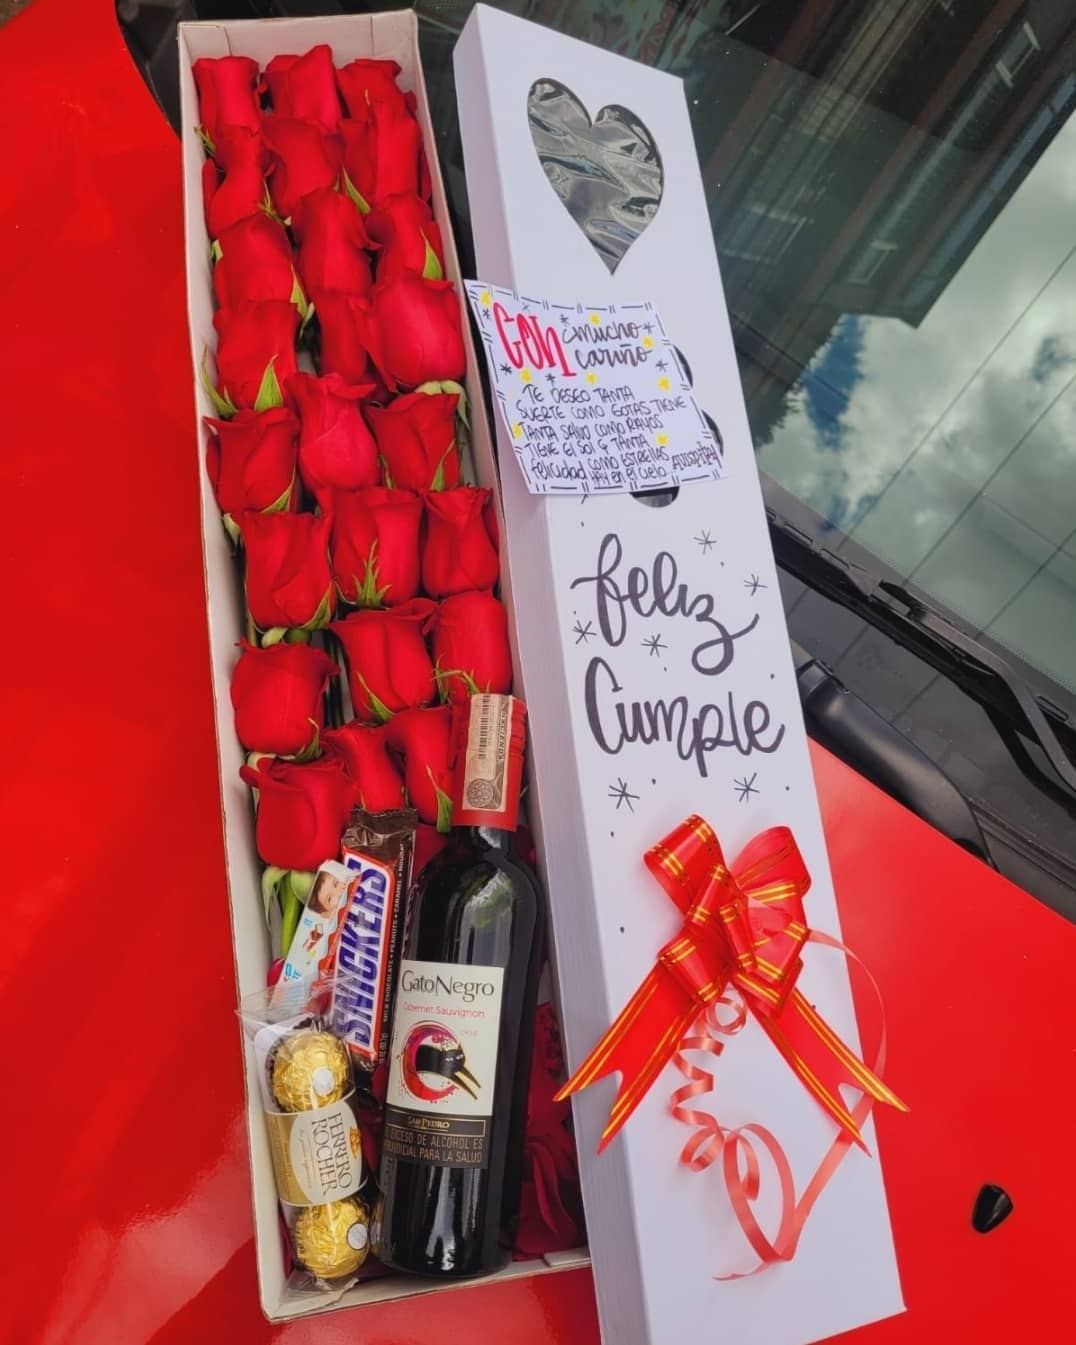 Con mucho
cariño
TE DESEO TANTA
SUERTE COMO GOTAS TIENE
TANTA SALUD COMO RAYOS
TIENE El Sol & TANTA
felicidad COMO ESTRELLAS
HAY en el cielo
feliz
Cumple
SNICKERS
MILK CHOCOLATE • PEANUTS • CARAMEL • NOUGAT
GatoNegro
Cabernet Sauvignon
SAN PEDRO
EXCESO DE ALCOHOL ES
PERJUDICIAL PARA LA SALUD
FERRERO
ROCHER